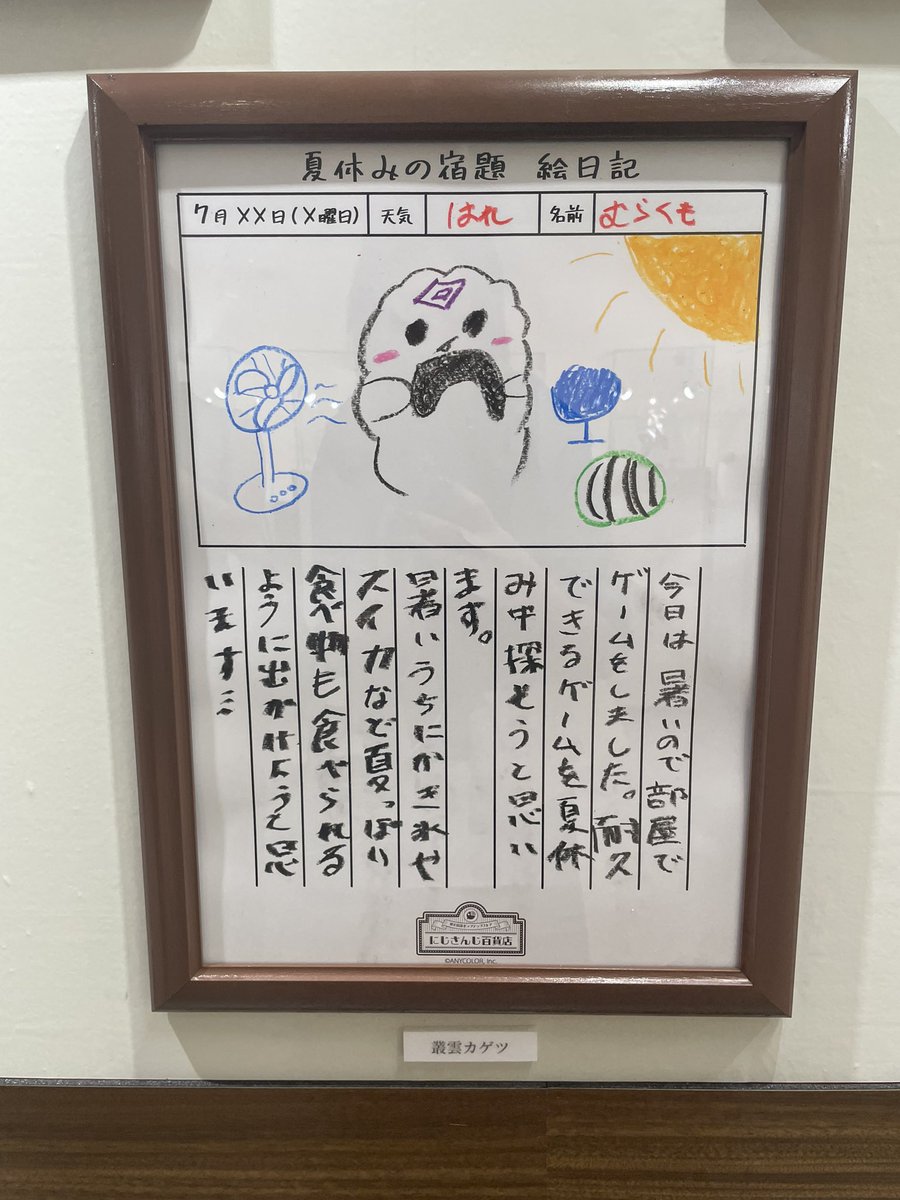 夏休みの宿題 絵日記
7月××日(×曜日) 天気 はれ 名前 むらくも
回
今日は暑いので部屋で
ゲームをしました。耐久
できるゲームを夏休
み中探そうと思い
ます。
暑いうちにかき氷や
スイカなど夏っぽい
食べ物も食べられる
ように出かけようと思
います
にじさんじ百貨店
©ANYCOLOR, Inc.
叢雲カゲツ